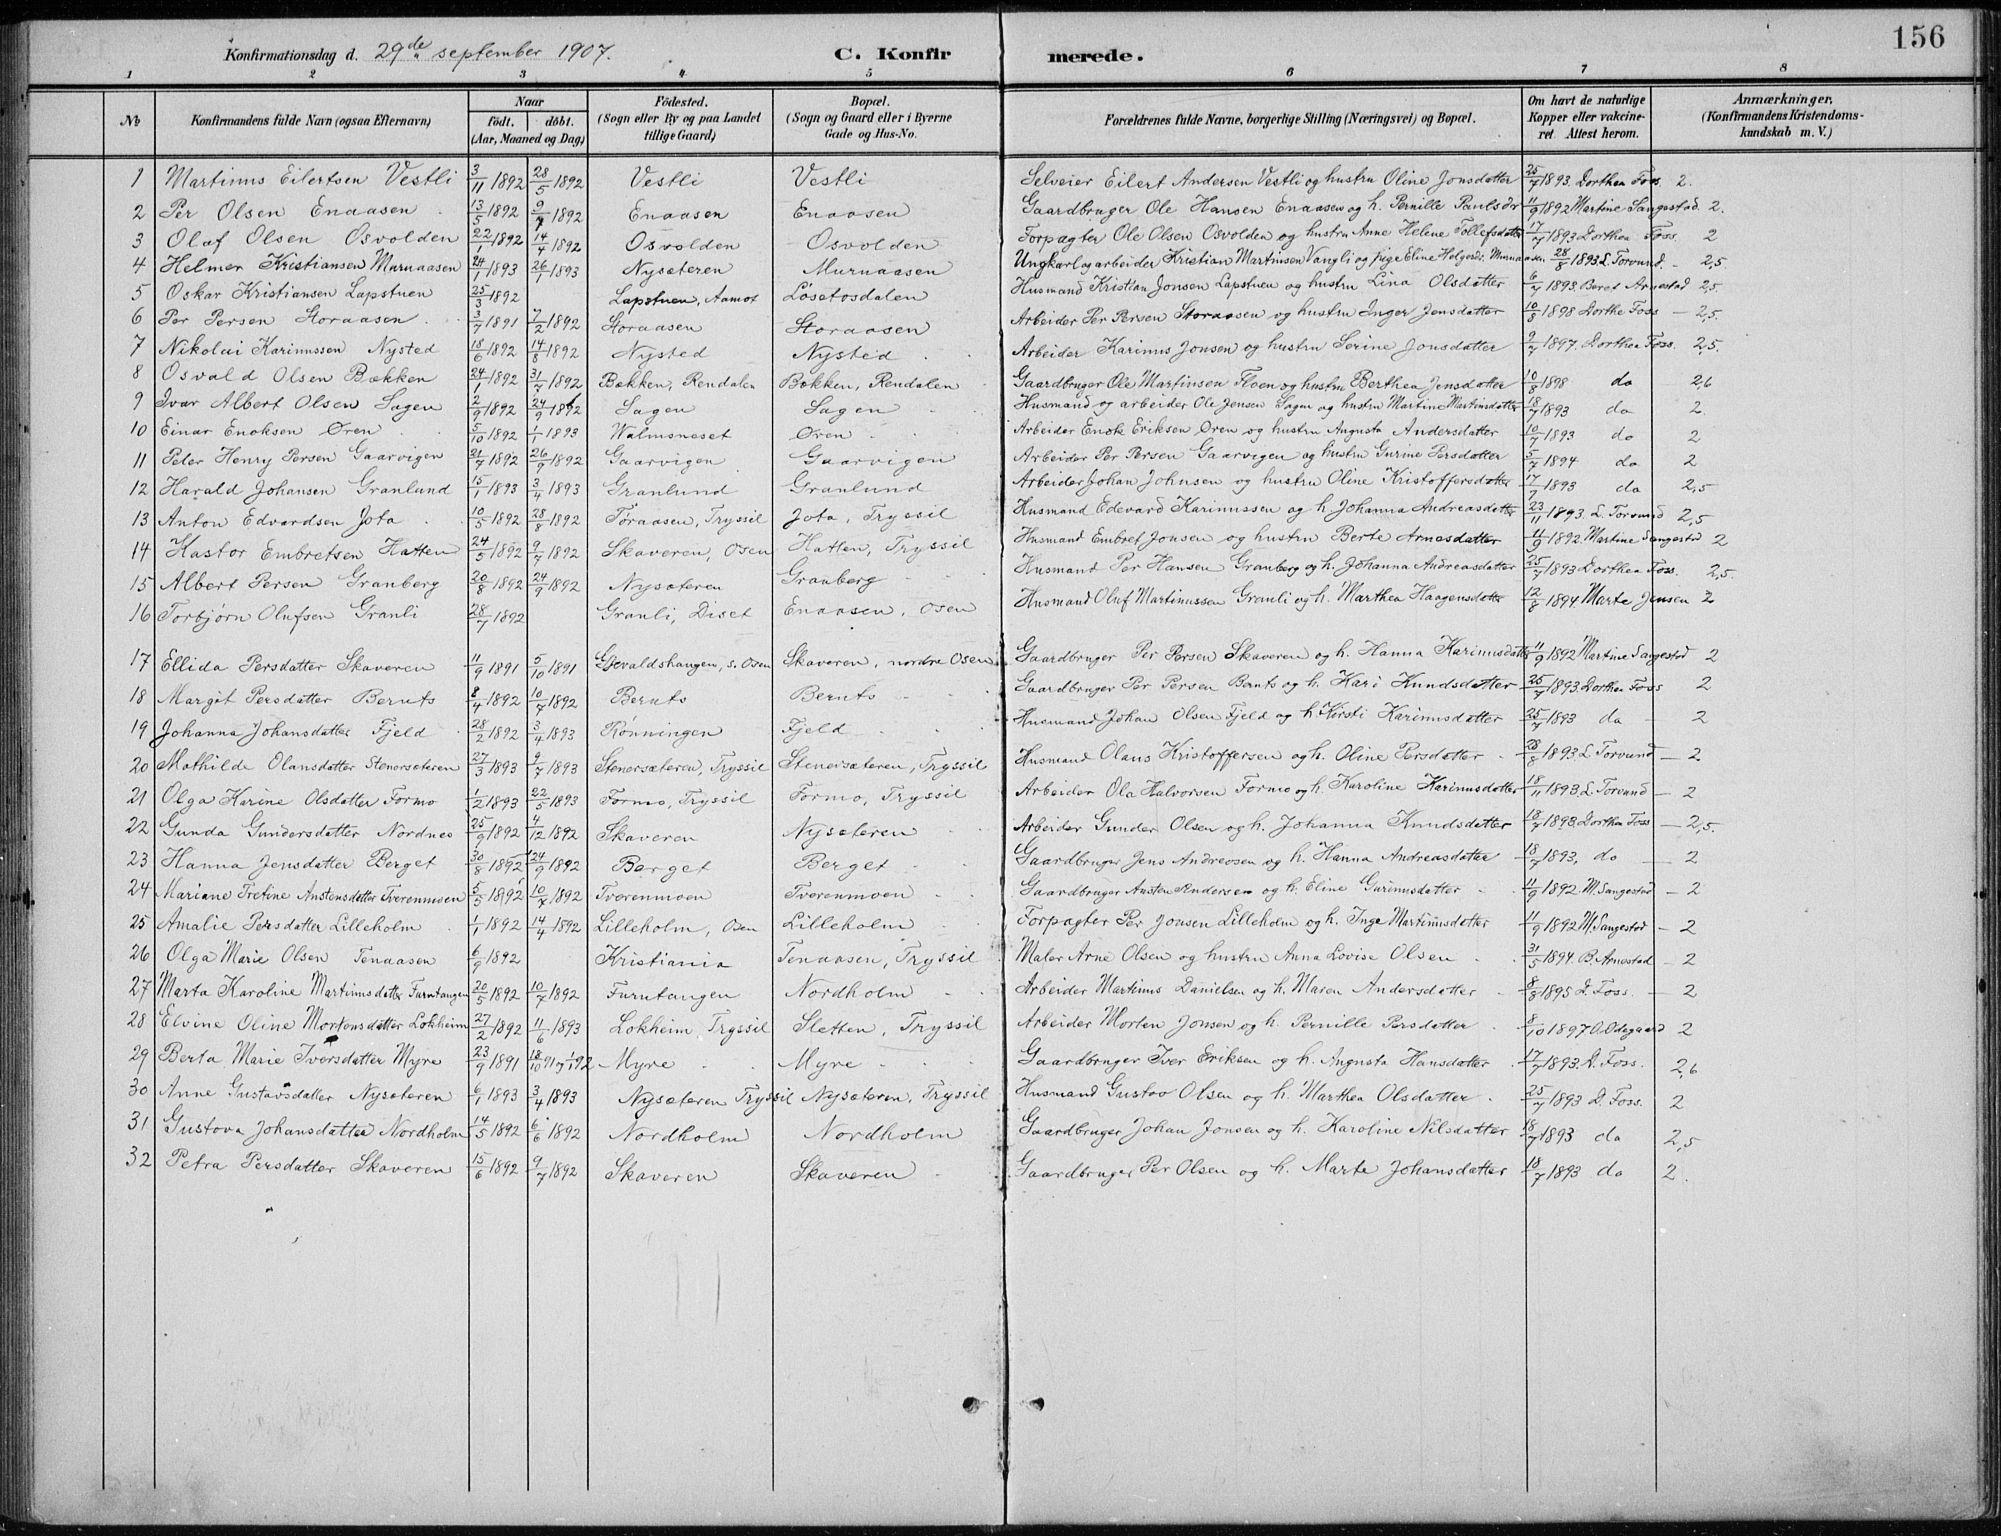 156
Konfirmationsdag d. 29de september 1907. C. Konfirmerede.
1 2 3 4 5 6 7 8
No Konfirmandens fulde Navn (ogsaa Efternavn) Naar födt. döbt. (Aar, Maaned og Dag) Födested. (Sogn eller By og paa Landet tillige Gaard) Bopæl. (Sogn og Gaard eller i Byerne Gade og Hus-No. Forældrenes fulde Navne, borgerlige Stilling (Næringsvei) og Bopæl. Om havt de naturlige Kopper eller vakcineret. Attest herom. Anmærkninger, (Konfirmandens Kristendomskundskab m. V.)
1 Martinus Eilertsen Vestli 3/11 1892 28/5 1892 Vestli Vestli Selveier Eilert Andersen Vestli og hustru Oline Jonsdatter 25/7 1893. Dorthea Foss. 2.
2 Per Olsen Enaasen 13/5 1892 9/7 1892 Enaasen Enaasen Gaardbruger Ole Hansen Enaasen og h. Pernille Paulsdr 11/9 1892 Martine Sangestad. 2.
3 Olaf Olsen Osvolden 22/1 1892 14/4 1892 Osvolden Osvolden Forpagter Ole Olsen Osvolden og hustru Anne Helene Tollefsdatter 17/7 1893 Dorthea Foss. 2
4 Helmer Kristiansen Murnaasen 24/1 1893 26/7 1893 Nysæteren Murnaasen Ungkarl og arbeider Kristian Martinsen Vangli og pige Eline Helgesdr. Murnaasen 28/8 1893 L. Torvund - 2,5
5 Oskar Kristiansen Lapstuen 25/3 1892 Lapstuen, Aamot Losetosdalen Husmand Kristian Jonsen Lapstuen og hustru Lina Olsdatter 6/7 1893. Beret Arnestad 2,5.
6 Per Persen Storaasen 3/7 1891 7/2 1892 Storaasen Storaasen Arbeider Per Persen Storaasen og hustru Inger Jensdatter 10/8 1898 Dorthe Foss - 2,5.
7 Nikolai Karinussen Nysted 18/6 1892 14/8 1892 Nysted Nysted Arbeider Karinus Jonsen og hustru Serine Jonsdatter 9/7 1897. Dorthea Foss. 2,5.
8 Osvald Olsen Bækken 24/1 1892 31/7 1892 Bækken, Rendalen Bækken, Rendalen Gaardbruger Ole Martinsen Floen og hustru Berthea Jensdatter 10/8 1898 do - 2,6
9 Ivar Albert Olsen Sagen 2/9 1892 24/9 1892 Sagen Sagen Husmand og arbeider Ole Jensen Sagen og hustru Martine Martinsdatter 18/7 1893 do 2.
10 Einar Enoksen Øren 5/10 1892 1/1 1893 Walmsneset Øren Arbeider Enok Eriksen Øren og hustru Augusta Andersdatter 10/7 1893 do 2
11 Peter Henry Persen Gaarvigen 21/7 1892 26/9 1892 Gaarvigen Gaarvigen Arbeider Per Persen Gaarvigen og hustru Gurine Persdatter 5/7 1894 do 2
12 Harald Johansen Granlund 15/1 1893 3/4 1893 Granlund Granlund Arbeider Johan Johnsen og hustru Oline Kristoffersdatter 17/7 1893 do 2,5
13 Anton Edvardsen Jota 10/5 1892 28/8 1892 Tøraasen, Tryssil Jota, Tryssil Husmand Edevard Karinussen og h. Johanna Andreasdatter 23/11 1893. L. Torvund 2,5
14 Kastor Embretsen Hatten 24/5 1892 9/7 1892 Skaveren, Osen Hatten, Tryssil Husmand Embret Jonsen og hustru Berte Arnesdatter 11/9 1892 Martine Sangestad 2
15 Albert Persen Granberg 20/8 1892 24/9 1892 Nysæteren Granberg Husmand Per Hansen Granberg og h. Johanna Andreasdatter 25/7 1893 Dorthea Foss. 2,5.
16 Torbjörn Olufsen Granli 28/7 1892 Granli, Diset Enaasen, Osen Husmand Oluf Martinussen Granli og h. Marthea Haagensdatter 12/8 1894 Marte Jensen 2
17 Ellida Persdatter Skaveren 11/9 1891 5/10 1891 Gjevaldshaugen, s. Osen Skaveren, nordre Osen Gaardbruger Per Persen Skaveren og h. Hanna Karinusdatter 11/9 1892 Martine Sangestad 2
18 Margit Persdatter Bernts 8/4 1892 10/7 1892 Bernts Bernts Gaardbruger Per Persen Bernts og h. Kari Knudsdatter 25/7 1893. Dorthea Foss 2
19 Johanna Johansdatter Fjeld 28/2 1892 3/4 1893 Rönningen Fjeld Husmand Johan Olsen Fjeld og h. Kirsti Karinusdatter 25/7 1893 do - 2
20 Mathilde Olausdatter Stenersæteren 27/3 1893 9/7 1893 Stenersæteren, Tryssil Stenersæteren, Tryssil Husmand Olaus Kristoffersen og h. Oline Persdatter 28/8 1893 L. Torvund - 2
21 Olga Karine Olsdatter Formo 1/2 1893 22/5 1893 Formo, Tryssil Formo, Tryssil Arbeider Ola Halvorsen Formo og h. Karoline Karinusdatter 18/11 1893. L. Torvund - 2
22 Gunda Gundersdatter Nordnes 25/9 1892 4/12 1892 Skaveren Nysæteren Arbeider Gunder Olsen og h. Johanna Knudsdatter 18/7 1893 Dorthea Foss - 2,5.
23 Hanna Jensdatter Berget 30/8 1892 24/9 1892 Berget Berget Gaardbruger Jens Andreasen og h. Hanna Andreasdatter 18/7 1893, do - 2
24 Mariane Tretine Austensdatter Tverenmoen 5/5 1892 10/7 1892 Tverenmoen Tverenmoen Gaardbruger Austen Andersen og h. Eline Gurinusdatter 11/9 1892. M. Sangestad - 2
25 Amalie Persdatter Lilleholm 1/1 1892 14/4 1892 Lilleholm, Osen Lilleholm Forpagter Per Jonsen Lilleholm og h. Inge Martinusdatter 11/9 1892 M. Sangestad - 2
26 Olga Marie Olsen Tenaasen 6/9 1892 Kristiania Tenaasen, Tryssil Maler Arne Olsen og hustru Anna Lovise Olsen 31/5 1894. B. Arnestad - 2
27 Marta Karoline Martinusdatter Furutangen 20/5 1892 10/7 1892 Furutangen Nordholm Arbeider Martinus Danielsen og h. Maren Andersdatter 8/8 1895 D. Foss. - 2
28 Elvine Oline Mortensdatter Lokheim 27/2 1892 11/6 1893 Lokheim, Tryssil Sletten, Tryssil Arbeider Morten Jonsen og h. Pernille Persdatter 8/10 1897 O. Ødegaard 2
29 Berta Marie Iversdatter Myre 23/9 1891 18/10 91 7/1 92 Myre Myre Gaardbruger Iver Eriksen og h. Augusta Hansdatter 17/7 1893. D. Foss. 2,6
30 Anne Gustavsdatter Nysæteren 6/1 1893 3/4 1893 Nysæteren Tryssil Nysæteren, Tryssil Husmand Gustav Olsen og h. Marthea Olsdatter 25/7 1893 D. Foss. 2
31 Gustava Johansdatter Nordholm 14/5 1892 6/6 1892 Nordholm Nordholm Gaardbruger Johan Jonsen og h. Karoline Nilsdatter 18/7 1893 do 2,5
32 Petra Persdatter Skaveren 15/6 1892 9/7 1892 Skaveren Skaveren Gaardbruger Per Olsen og h. Marte Johansdatter 18/7 1893 do 2.